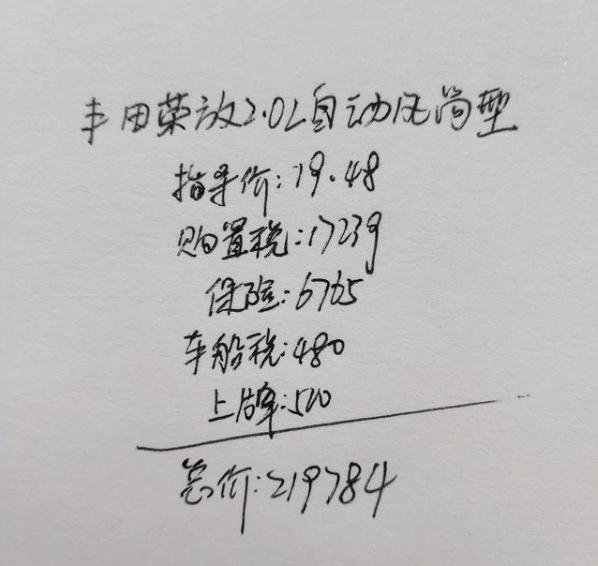 丰田荣放2.0L自动风尚型
指导价:19.48
购置税:17239
保险:6765
车船税:480
上牌:500
总价:219784